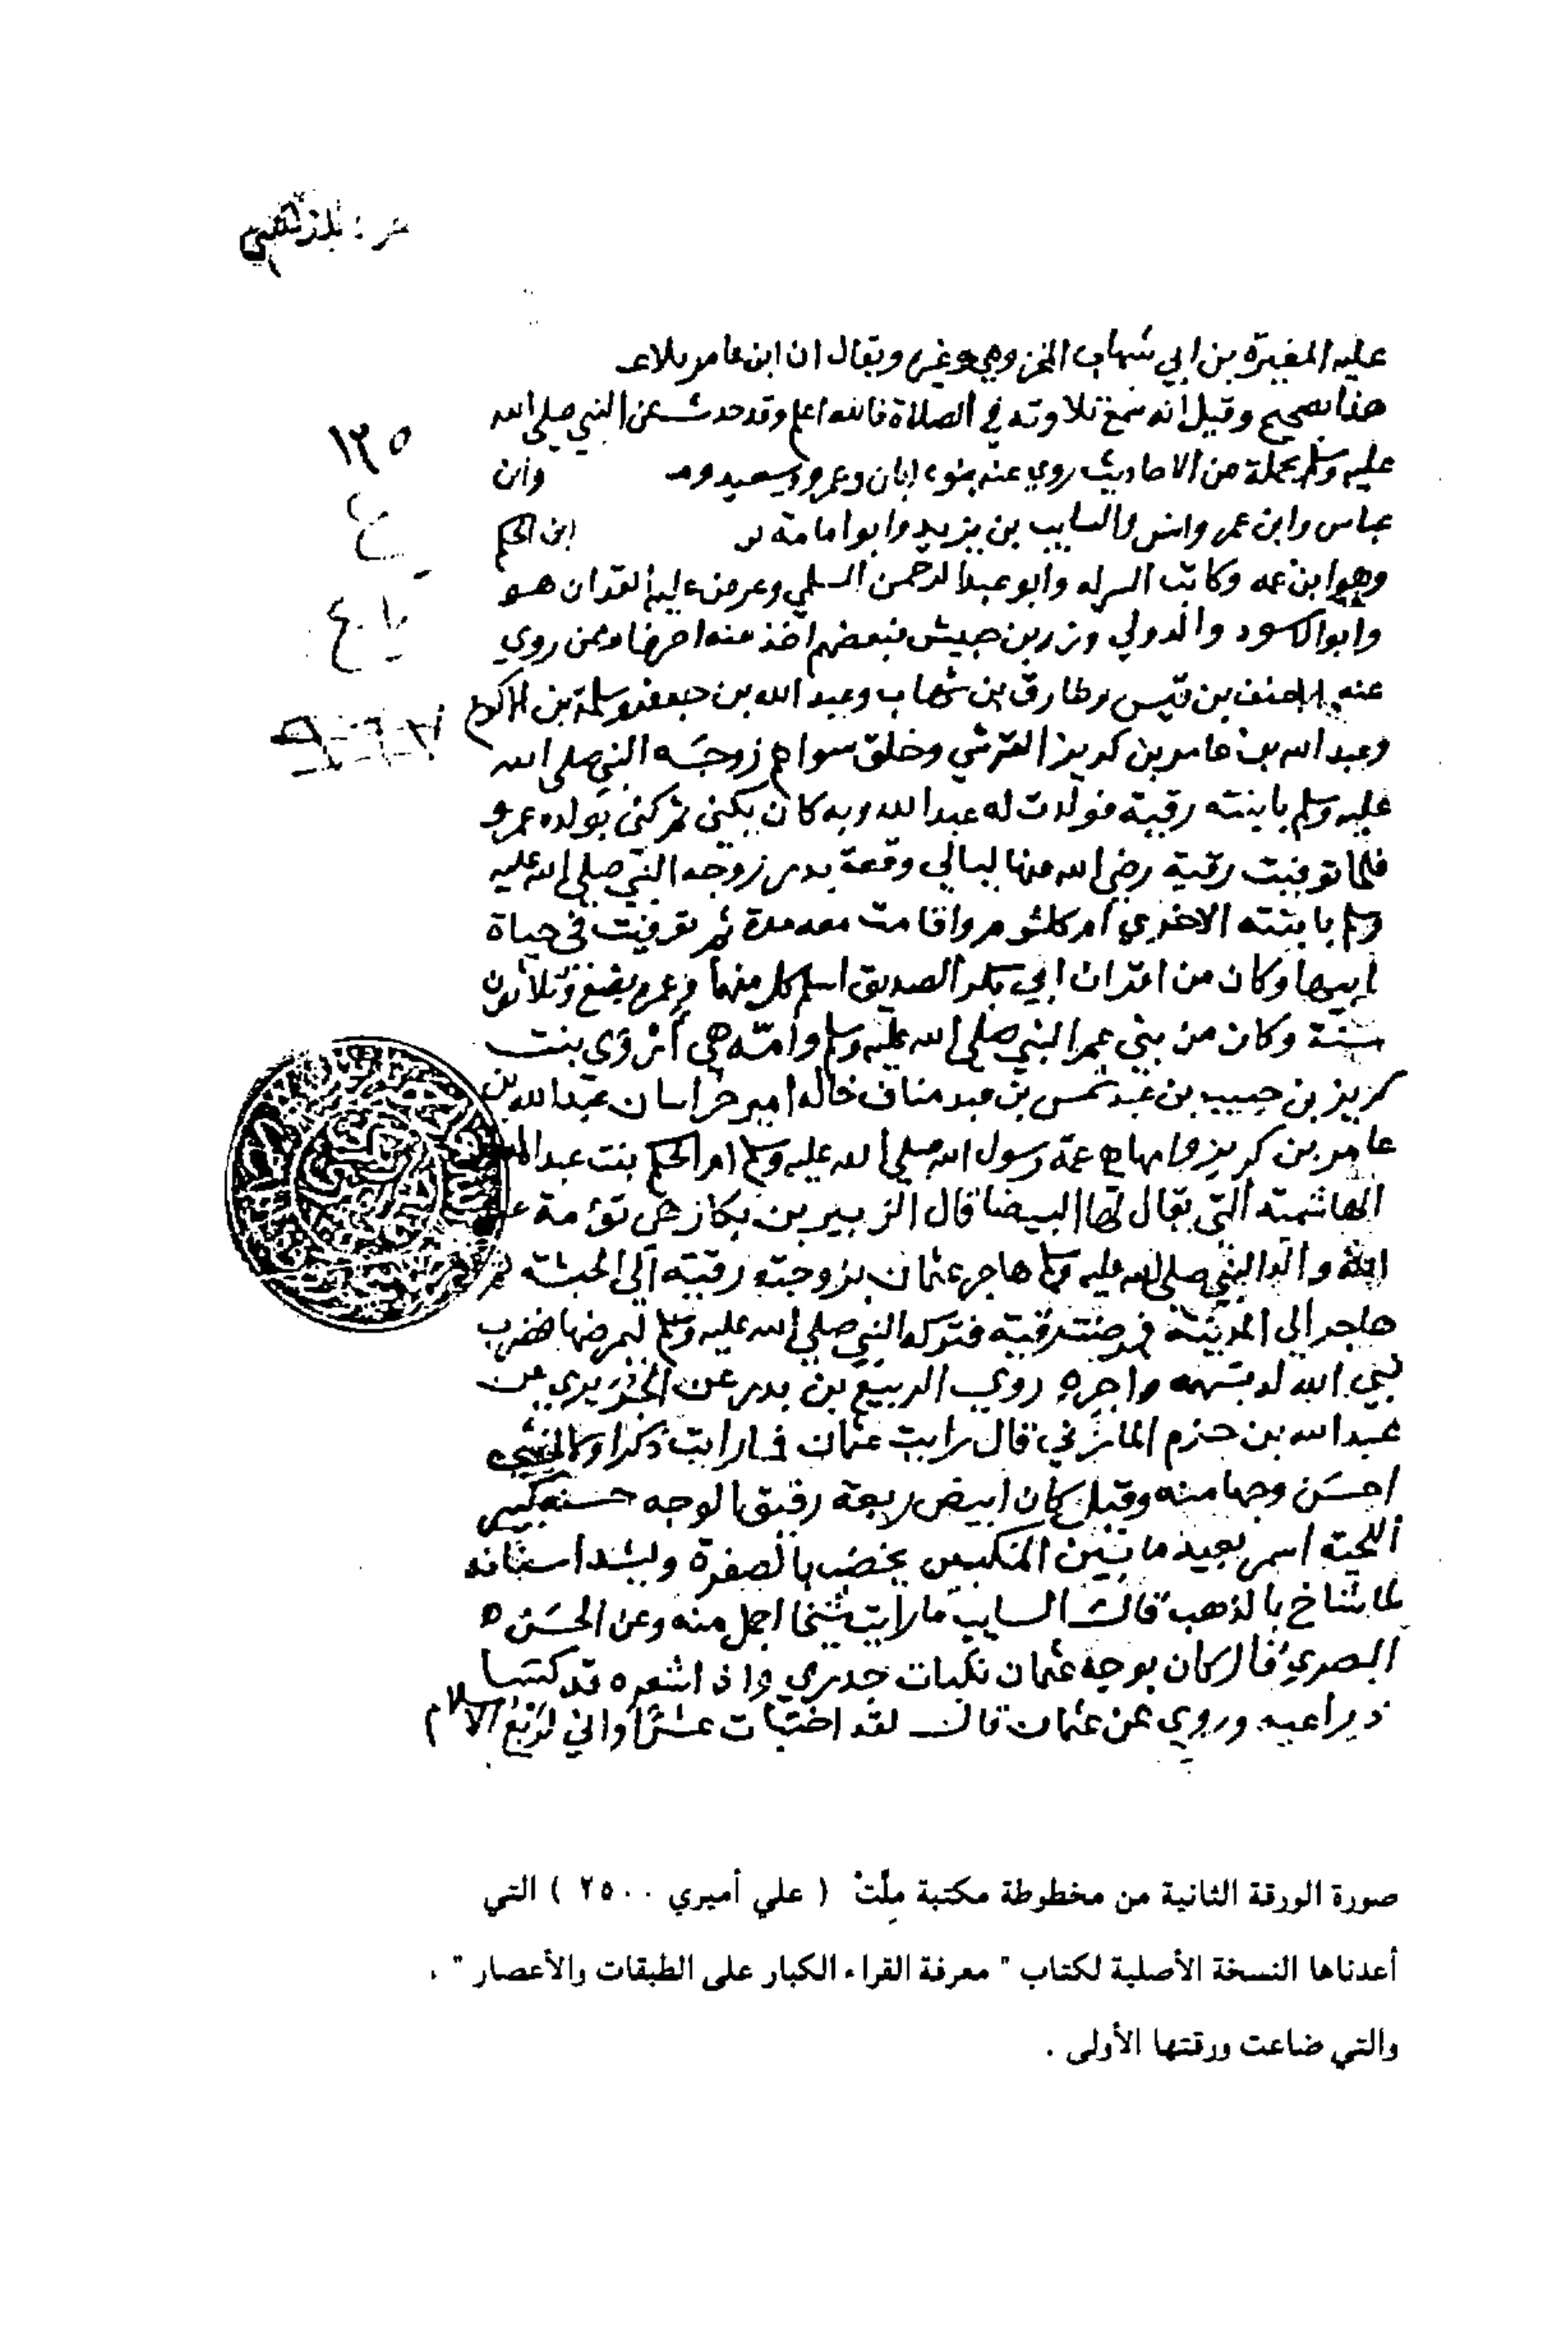 عليه المغيرة بن ابي شهاب المخزومي وغيره ويقال ان ابن عامر تلا عـ
هذا بصحيح وقيل انه سمع تلاوته في الصلاة فالله اعلم وقد حدث عن النبي صلى الله
١٢٥
عليه وسلم بجملة من الاحاديث روي عنه بنوه ابان وعمرو وسعيد وحـ وابن
عباس وابن عمر وانس والسايب بن يزيد وابو امامة بن ابن الحكم
وهو ابن عمه وكاتب السر له وابو عبد الرحمن السلمي وعرض عليه القران هو
وابو الاسود والدولي وزر بن حبيش فبعضهم اخذ عنه احرفا وممن روي
عنه الاحنف بن قيس وطارق بن شهاب وعبد الله بن جعفر وسلمة بن الاكوع
وعبد الله بن عامر بن كريز القرشي وخلق سواهم زوجه النبي صلى الله
عليه وسلم بابنته رقية فولدت له عبد الله وبه كان يكنى ثم كنى بولده عمرو
فلما توفيت رقية رضي الله عنها ليالي وقعة بدر زوجه النبي صلى الله عليه
وسلم بابنته الاخري ام كلثوم واقامت معه مدة ثم توفيت في حياة
ابيها وكان من اقران ابي بكر الصديق اسلم كل منهما وعمره بضع وثلاثون
سنة وكان من بني عم النبي صلى الله عليه وسلم وامه هي اروى بنت
كريز بن حبيب بن عبد شمس بن عبد مناف خاله امير خراسان عبد الله بن
عامر بن كريز وامها هي عمة رسول الله صلى الله عليه وسلم ام الحكم بنت عبد المـ
الهاشمية التي يقال لها البيضا قال الزبير بن بكار هي تؤمة عبد
الله والد النبي صلى الله عليه وسلم هاجر عثمان بزوجته رقية الى الحبشة ثم
هاجر الى المدينة فمرضت رقية فتركه النبي صلى الله عليه وسلم ليمرضها فضرب
نبي الله له بسهمه واجره روي الربيع بن بدر عن الجريري عن
عبد الله بن حزم المازني قال رايت عثمان فما رايت ذكرا ولا انثى
احسن وجها منه وقيل كان ابيض ربعة رقيق الوجه حسنه كبير
اللحية اسمر بعيد ما بين المنكبين يخضب بالصفرة ويشد اسنانه
لما شاخ بالذهب قال السايب ما رايت شيخا اجمل منه وعن الحسن
البصري قال كان بوجه عثمان نكبات جدري واذا شعره قد كسا
ذراعيه وروي عن عثمان قال لقد اختبات عشرا واني لرابع الاسلام
صورة الورقة الثانية من مخطوطة مكتبة مِلّتْ ( علي أميري ٢٥٠٠ ) التي
أعدناها النسخة الأصلية لكتاب " معرفة القراء الكبار على الطبقات والأعصار " ،
والتي ضاعت ورقتها الأولى .